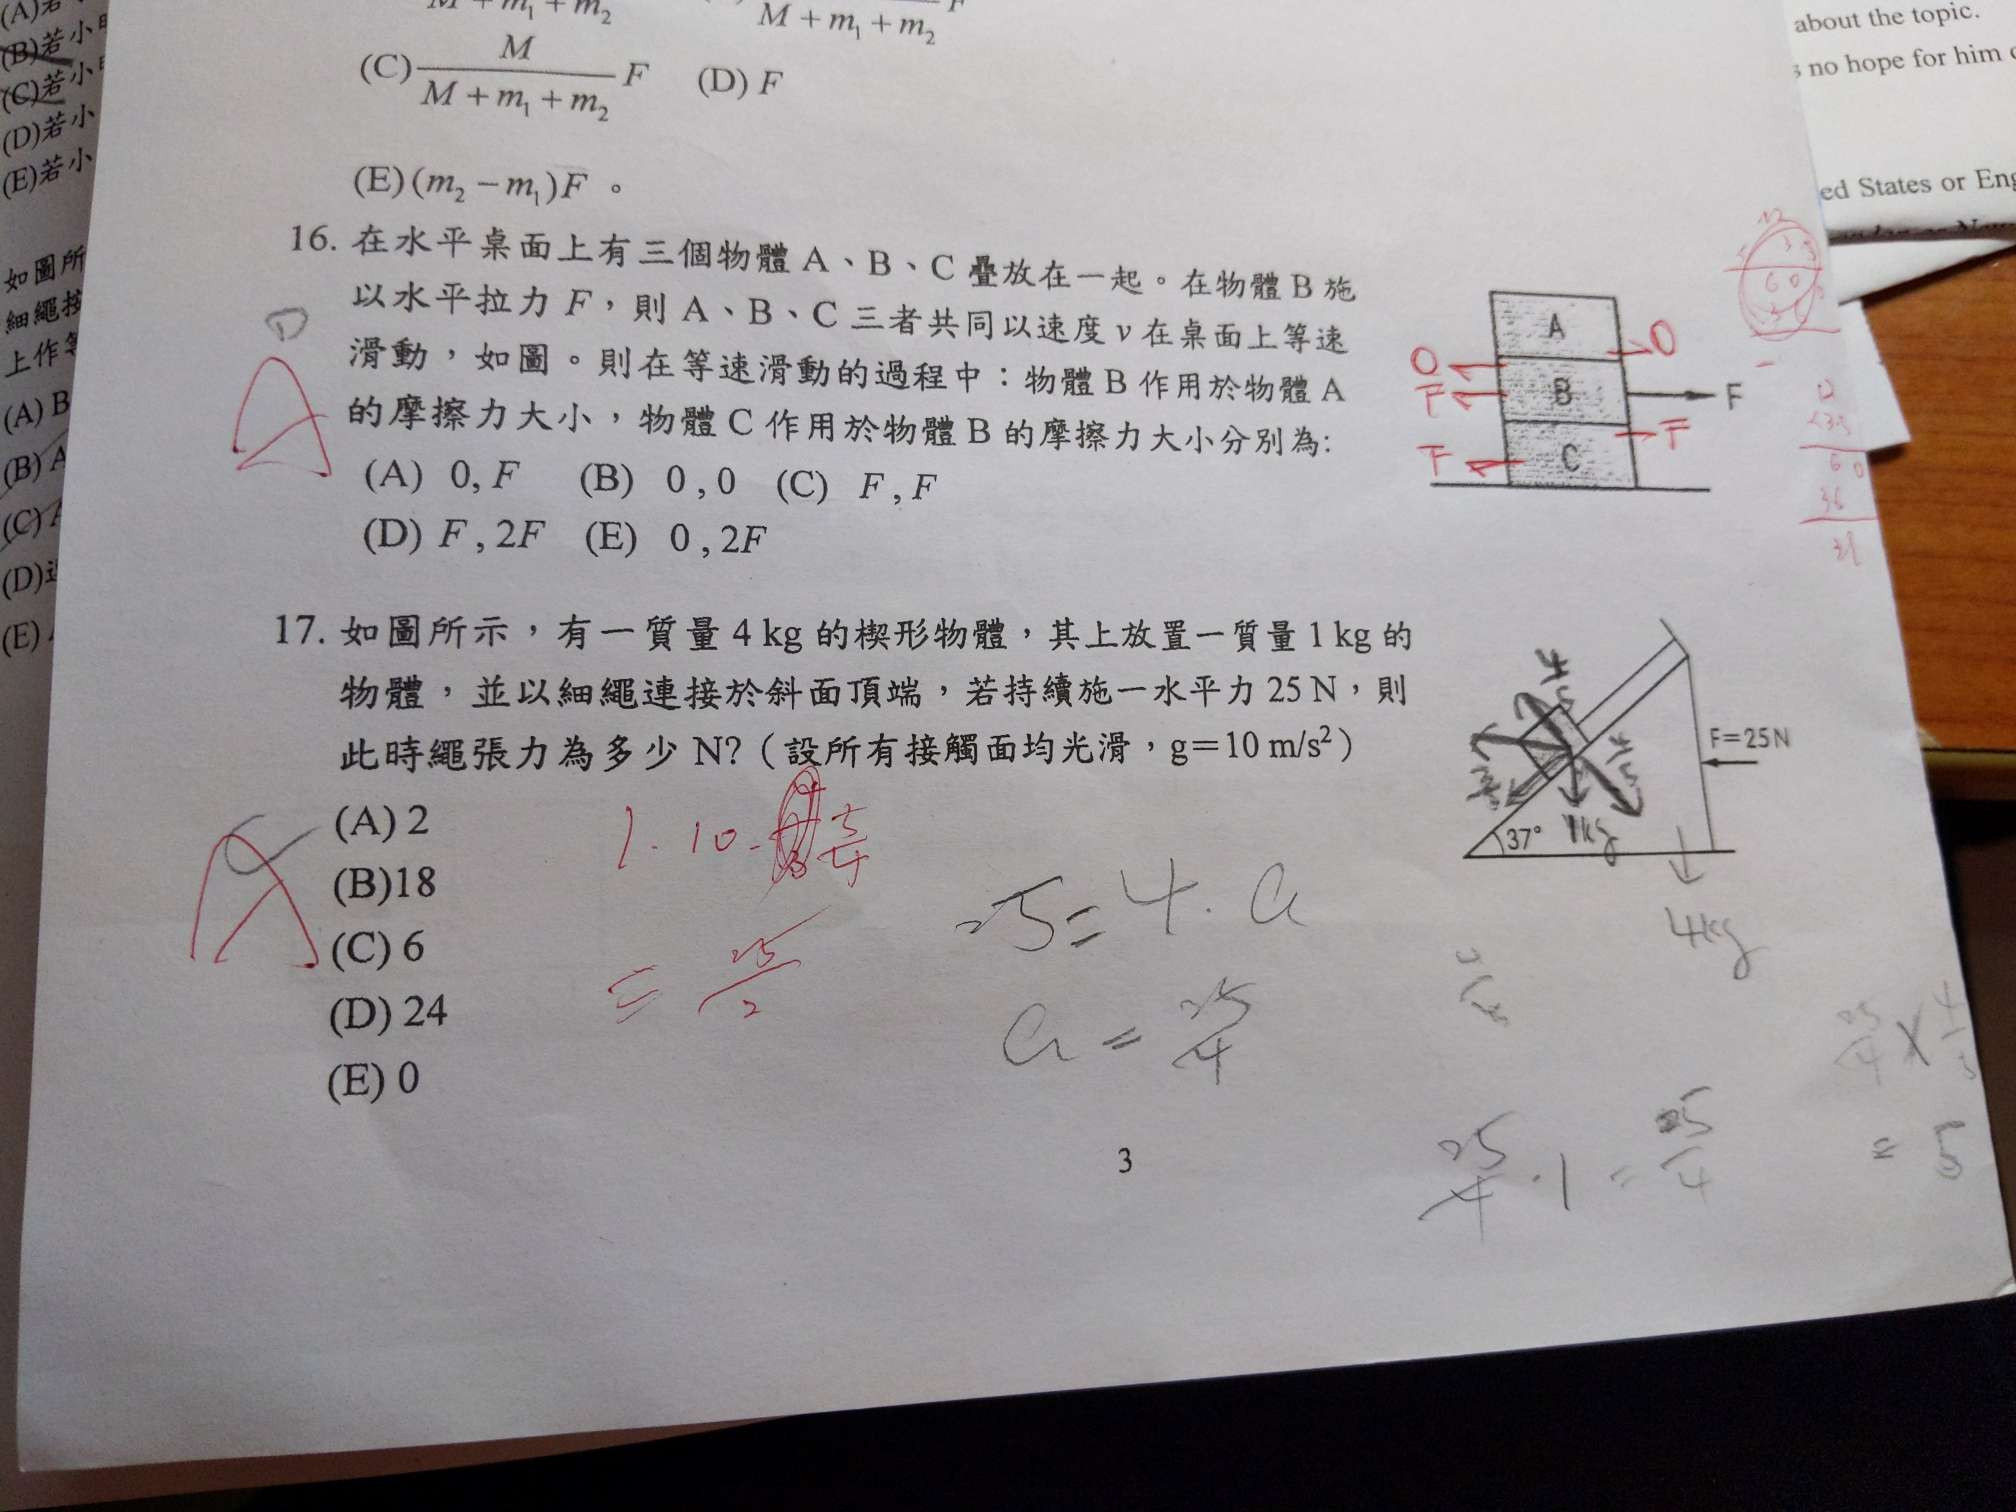 (A)若
(B)若小
(C)若小
(D)若小
(E)若小
如圖所
細繩接
上作等
(A) B
(B) A
(C) A
(D)
(E)
about the topic.
no hope for him
ed States or Eng
M + m₁ + m₂
M + m₁ + m₂ F
(C) M / (M + m₁ + m₂) F (D) F
(E) (m₂ − m₁)F 。
16. 在水平桌面上有三個物體 A、B、C 疊放在一起。在物體 B 施
以水平拉力 F，則 A、B、C 三者共同以速度 v 在桌面上等速
滑動，如圖。則在等速滑動的過程中：物體 B 作用於物體 A
的摩擦力大小，物體 C 作用於物體 B 的摩擦力大小分別為:
(A) 0, F (B) 0 , 0 (C) F , F
(D) F , 2F (E) 0 , 2F
D
A
A
B
C
F
0
0
F
F
F
17. 如圖所示，有一質量 4 kg 的楔形物體，其上放置一質量 1 kg 的
物體，並以細繩連接於斜面頂端，若持續施一水平力 25 N，則
此時繩張力為多少 N?（設所有接觸面均光滑，g＝10 m/s²）
(A) 2
(B)18
(C) 6
(D) 24
(E) 0
C
A
F=25N
37°
1kg
4kg
25 = 4 . a
a = 25/4
25/4 . 1 = 25/4
= 5
3